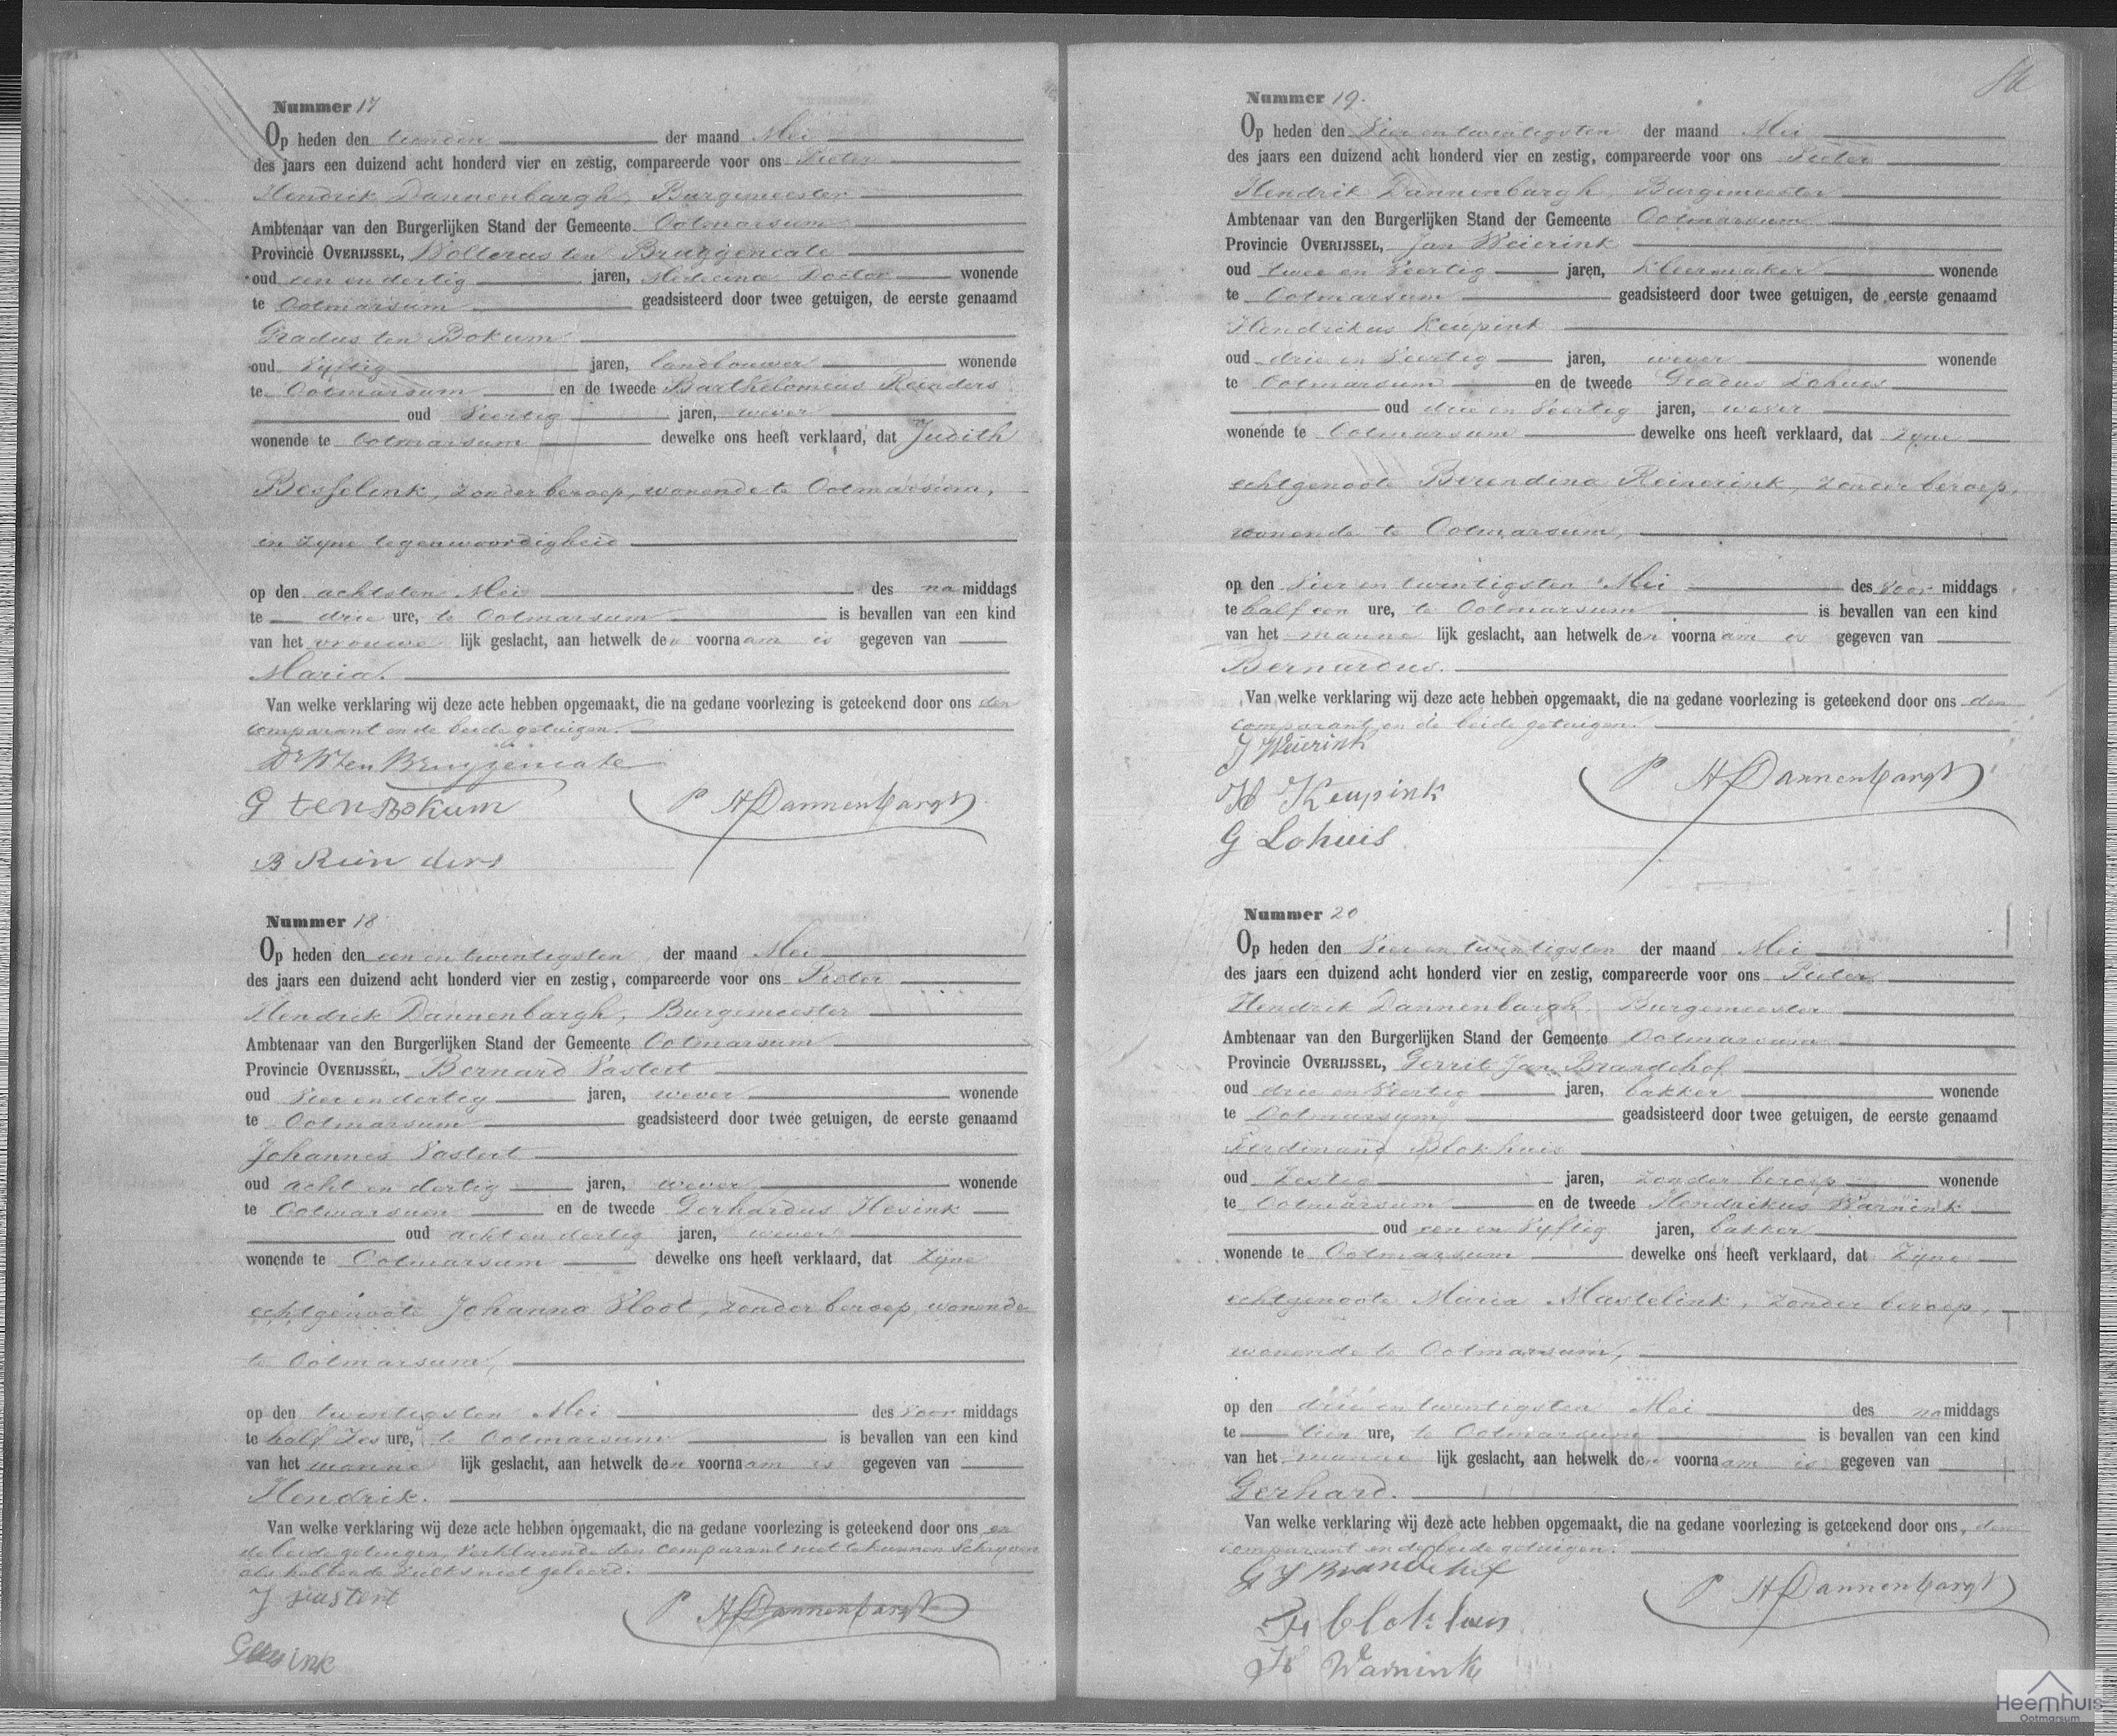 Nummer 17
Op heden den tienden der maand Mei
des jaars een duizend acht honderd vier en zestig, compareerde voor ons Pieter
Hendrik Dannenbargh, Burgemeester
Ambtenaar van den Burgerlijken Stand der Gemeente Ootmarsum
Provincie OVERIJSSEL, Wolterus ten Bruggencate
oud een en dertig jaren, Medicina Doctor wonende
te Ootmarsum geadsisteerd door twee getuigen, de eerste genaamd
Gradus ten Bokum
oud Vijftig jaren, landbouwer wonende
te Ootmarsum en de tweede Bartholomeus Reinders
oud Veertig jaren, wever
wonende te Ootmarsum dewelke ons heeft verklaard, dat Judith
Besselink, zonder beroep, wonende te Ootmarsum,
in zyne tegenwoordigheid
op den achtsten Mei des na middags
te drie ure, te Ootmarsum is bevallen van een kind
van het vrouwe lijk geslacht, aan hetwelk den voornaam is gegeven van
Maria.
Van welke verklaring wij deze acte hebben opgemaakt, die na gedane voorlezing is geteekend door ons den
comparant en de beide getuigen.
Dr W ten Bruggencate
G ten Bokum
P H Dannenbargh
B Rein ders
Nummer 18
Op heden den een en twintigsten der maand Mei
des jaars een duizend acht honderd vier en zestig, compareerde voor ons Pieter
Hendrik Dannenbargh, Burgemeester
Ambtenaar van den Burgerlijken Stand der Gemeente Ootmarsum
Provincie OVERIJSSEL, Bernard Vastert
oud Vier en dertig jaren, wever wonende
te Ootmarsum geadsisteerd door twee getuigen, de eerste genaamd
Johannes Vastert
oud acht en dertig jaren, wever wonende
te Ootmarsum en de tweede Gerhardus Hesink
oud acht en dertig jaren, wever
wonende te Ootmarsum dewelke ons heeft verklaard, dat Zyne
echtgenoote Johanna Vloot, zonder beroep, wonende
te Ootmarsum,
op den twintigsten Mei des Voor middags
te half Zes ure, te Ootmarsum is bevallen van een kind
van het manne lijk geslacht, aan hetwelk den voornaam is gegeven van
Hendrik.
Van welke verklaring wij deze acte hebben opgemaakt, die na gedane voorlezing is geteekend door ons en
de beide getuigen, verklarende den comparant niet te kunnen Schryven
als hebbende zulks niet geleerd.
J Vastert
P H Dannenbargh
Nummer 19.
Op heden den Vier en twintigsten der maand Mei
des jaars een duizend acht honderd vier en zestig, compareerde voor ons Pieter
Hendrik Dannenbargh, Burgemeester
Ambtenaar van den Burgerlijken Stand der Gemeente Ootmarsum
Provincie OVERIJSSEL, Jan Weierink
oud twee en Veertig jaren, Kleermaker wonende
te Ootmarsum geadsisteerd door twee getuigen, de eerste genaamd
Hendrikus Keupink
oud drie en Veertig jaren, wever wonende
te Ootmarsum en de tweede Gradus Lohuis
oud drie en Veertig jaren, wever
wonende te Ootmarsum dewelke ons heeft verklaard, dat Zyne
echtgenoote Berendina Reinerink, zonder beroep,
wonende te Ootmarsum,
op den Vier en twintigsten Mei des Voor middags
te half een ure, te Ootmarsum is bevallen van een kind
van het manne lijk geslacht, aan hetwelk den voornaam is gegeven van
Bernardus.
Van welke verklaring wij deze acte hebben opgemaakt, die na gedane voorlezing is geteekend door ons den
comparant en de beide getuigen.
J Weierink
H Keupink
P H Dannenbargh
G Lohuis
Nummer 20
Op heden den Vier en twintigsten der maand Mei
des jaars een duizend acht honderd vier en zestig, compareerde voor ons Pieter
Hendrik Dannenbargh, Burgemeester
Ambtenaar van den Burgerlijken Stand der Gemeente Ootmarsum
Provincie OVERIJSSEL, Gerrit Jan Brandehof
oud drie en Veertig jaren, bakker wonende
te Ootmarsum geadsisteerd door twee getuigen, de eerste genaamd
Ferdinand Blokhuis
oud Zestig jaren, zonder beroep wonende
te Ootmarsum en de tweede Hendrikus Warnink
oud een en Vyftig jaren, bakker
wonende te Ootmarsum dewelke ons heeft verklaard, dat Zyne
echtgenoote Maria Mastelink, zonder beroep,
wonende te Ootmarsum,
op den drie en twintigsten Mei des na middags
te tien ure, te Ootmarsum is bevallen van een kind
van het manne lijk geslacht, aan hetwelk den voornaam is gegeven van
Gerhard.
Van welke verklaring wij deze acte hebben opgemaakt, die na gedane voorlezing is geteekend door ons, den
comparant en de beide getuigen.
G J Brandehof
P H Dannenbargh
H Warnink
Heemhuis
Ootmarsum